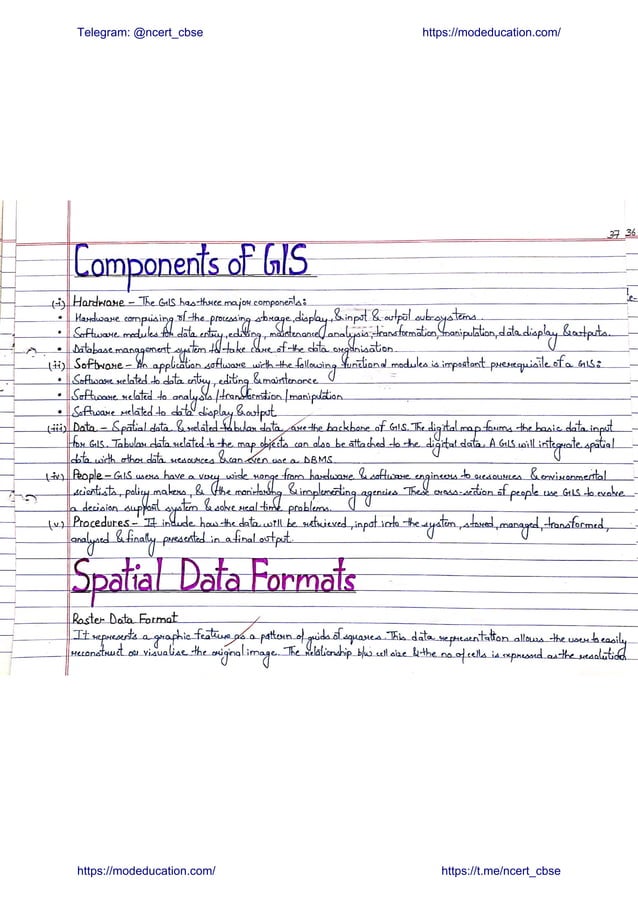 Telegram: @ncert_cbse https://modeducation.com/
37 36
Components of GIS
(i) Hardware – The GIS has three major components:
• Hardware comprising of the processing storage, display, & input & output subsystems.
• Software modules for data entry, editing, maintenance, analysis, transformation, manipulation, data display & outputs.
• Database management system to take care of the data organisation.
(ii) Software – An application software with the following functional modules is important prerequisite of a GIS:
• Software related to data entry, editing & maintenance
• Software related to analysis / transformation / manipulation
• Software related to data display & output
(iii) Data – Spatial data & related tabular data are the backbone of GIS. The digital map forms the basic data input
for GIS. Tabular data related to the map objects can also be attached to the digital data. A GIS will integrate spatial
data with other data resources & can even use a DBMS.
(iv) People – GIS users have a very wide range from hardware & software engineers to resources & environmental
scientists, policy makers, & the monitoring & implementing agencies. These cross-section of people use GIS to evolve
a decision support system & solve real time problems.
(v) Procedures – It include how the data will be retrieved, input into the system, stored, managed, transformed,
analysed & finally presented in a final output.
Spatial Data Formats
Raster Data Format
It represents a graphic feature as a pattern of grids of squares. This data representation allows the user to easily
reconstruct or visualise the original image. The relationship b/w cell size & the no. of cells is expressed as the resolution
https://modeducation.com/ https://t.me/ncert_cbse